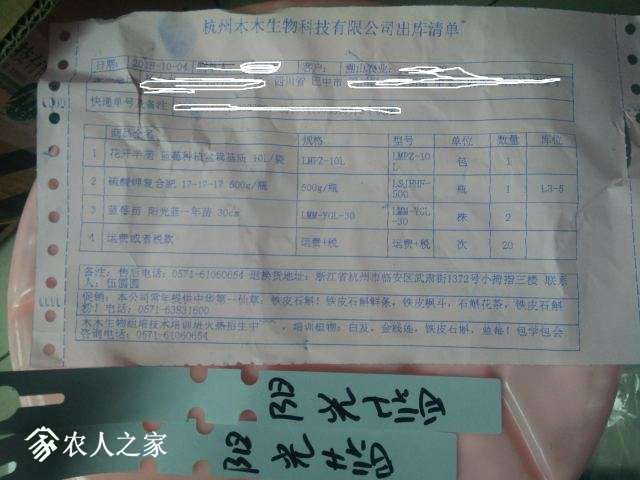 杭州木木生物科技有限公司出库清单
日期 2018-10-04 客户
四川省 巴中市
快递单号及备注
商品全名 规格 型号 单位 数量 库位
1 花开半亩 蓝莓种植 基质 10L/袋 LMPZ-10L LMPZ-10L 包 1
2 硫酸钾复合肥 17-17-17 500g/瓶 500g/瓶 -500 瓶 1 L3-5
3 蓝莓苗 阳光蓝一年苗 30cm LMM-YGL-30 LMM-YGL-30 株 2
4 运费或者税款 运费+税 运费+税 次 20
备注: 售后电话: 0571-61060654 退换货地址: 浙江省杭州市临安区武肃街1372号小拇指三楼 联系
人: 伍圆圆
促销: 本公司常年提供中华第一仙草: 铁皮石斛! 铁皮石斛鲜条, 铁皮枫斗, 石斛花茶, 铁皮石斛
粉! 电话: 0571-63831600
木木生物组培技术培训班火热招生中 , 培训植物: 白及, 金线莲, 铁皮石斛, 蓝莓! 包学包会
咨询电话: 0571-61060654
阳 阳光蓝
阳光蓝
农人之家